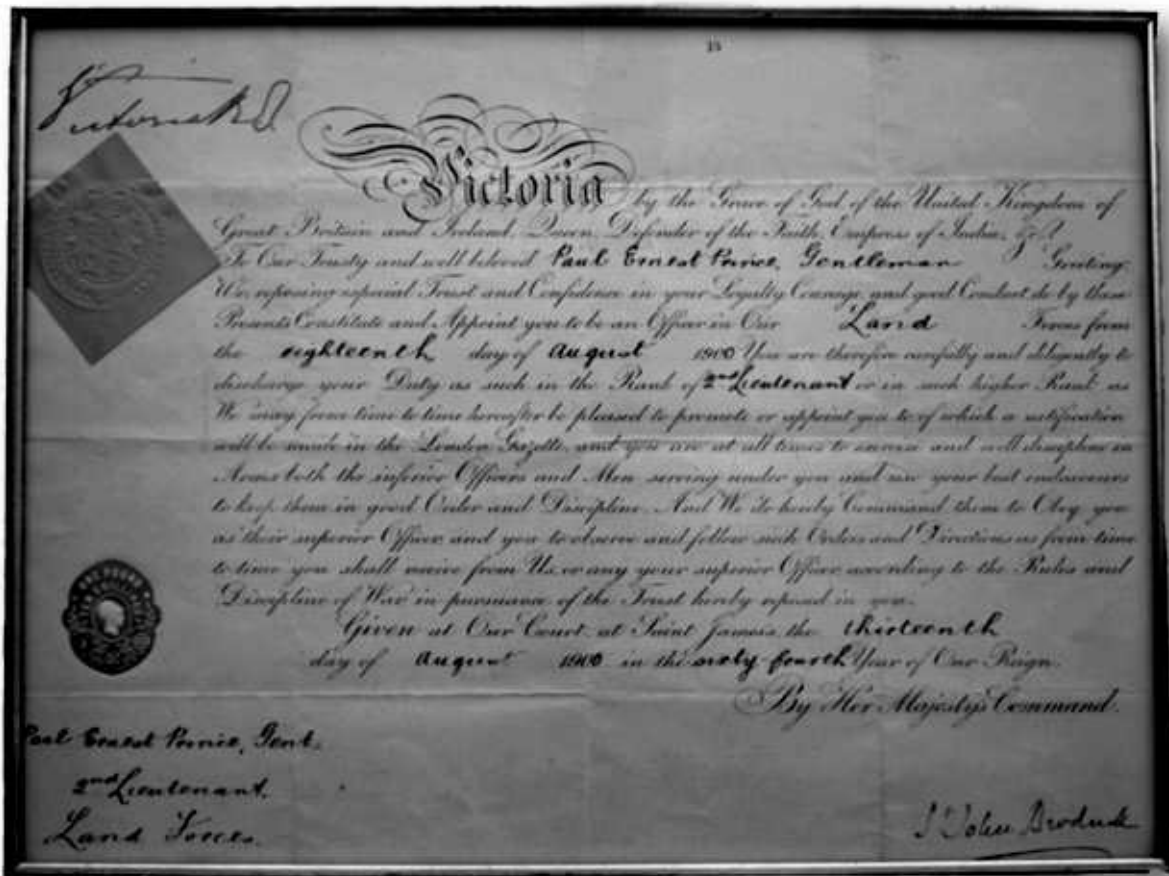 Victoria R I
Victoria by the Grace of God of the United Kingdom of
Great Britain and Ireland, Queen, Defender of the Faith, Empress of India, &c.
To Our Trusty and well beloved Paul Ernest Prince, Gentleman Greeting.
We, reposing especial Trust and Confidence in your Loyalty Courage, and good Conduct do by these
Presents Constitute and Appoint you to be an Officer in Our Land Forces from
the eighteenth day of August 1900 You are therefore carefully and diligently to
discharge your Duty as such in the Rank of 2nd Lieutenant or in such higher Rank as
We may from time to time hereafter be pleased to promote or appoint you to of which a notification
will be made in the London Gazette, and you are at all times to exercise and well discipline in
Arms both the inferior Officers and Men serving under you and use your best endeavours
to keep them in good Order and Discipline. And We do hereby Command them to Obey you
as their superior Officer and you to observe and follow such Orders and Directions as from time
to time you shall receive from Us, or any your superior Officer according to the Rules and
Discipline of War in pursuance of the Trust hereby reposed in you.
Given at Our Court, at Saint James's, the thirteenth
day of August 1900 in the sixty fourth Year of Our Reign.
By Her Majesty's Command.
Paul Ernest Prince, Gent.
2nd Lieutenant.
Land Forces.
St John Brodrick